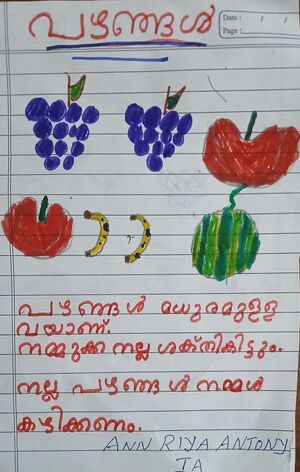 പഴങ്ങൾ
Date : / /
Page :
പഴങ്ങൾ മധുരമുളള
വയാണ്.
നമ്മുക്ക നല്ല ശക്തികിട്ടും.
നല്ല പഴങ്ങൾ നമ്മൾ
കഴിക്കണം.
ANN RIYA ANTONY
IA